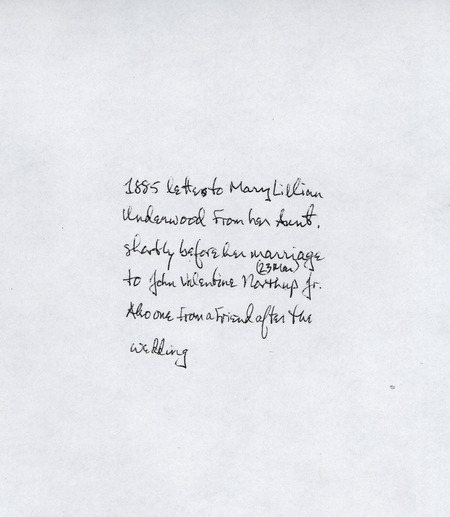 1885 letters to Mary Lillian
Underwood From her Aunt,
shortly before her marriage
(23 Mar)
to John Valentine Northup Jr.
Also one From a Friend after the
wedding